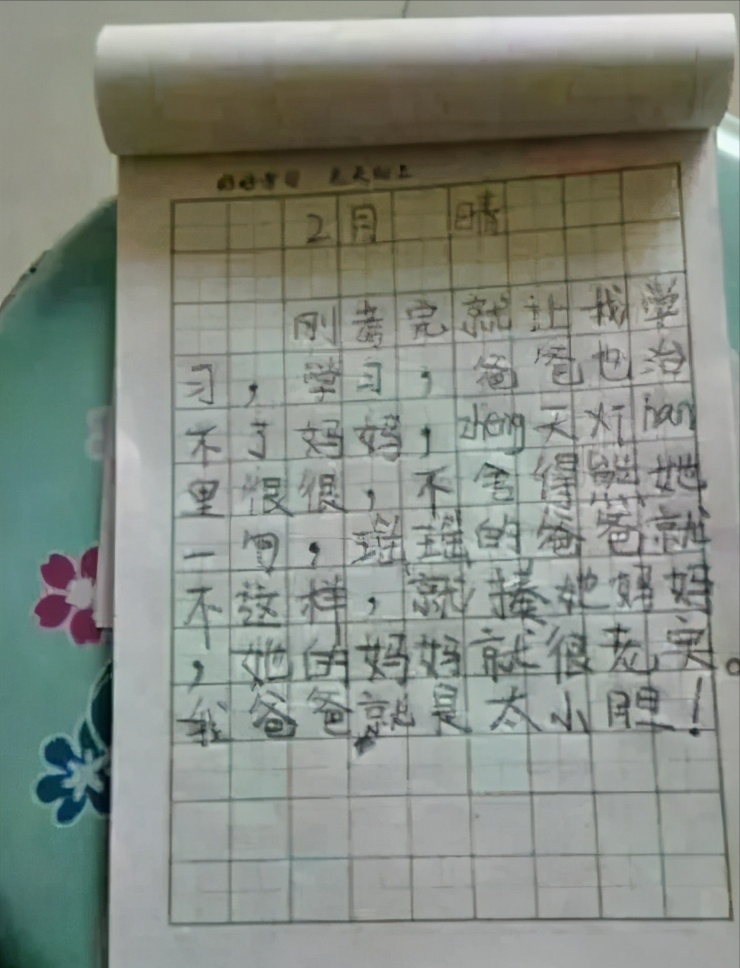 好好学习 天天向上
2月 晴
刚考完就让我学
习，学习，爸爸也治
不了妈妈，zheng天对han
里很很，不舍得怼她
一句，瑶瑶的爸爸就
不这样，就揍她妈妈
，她的妈妈就很老实。
我爸爸就是太小胆！